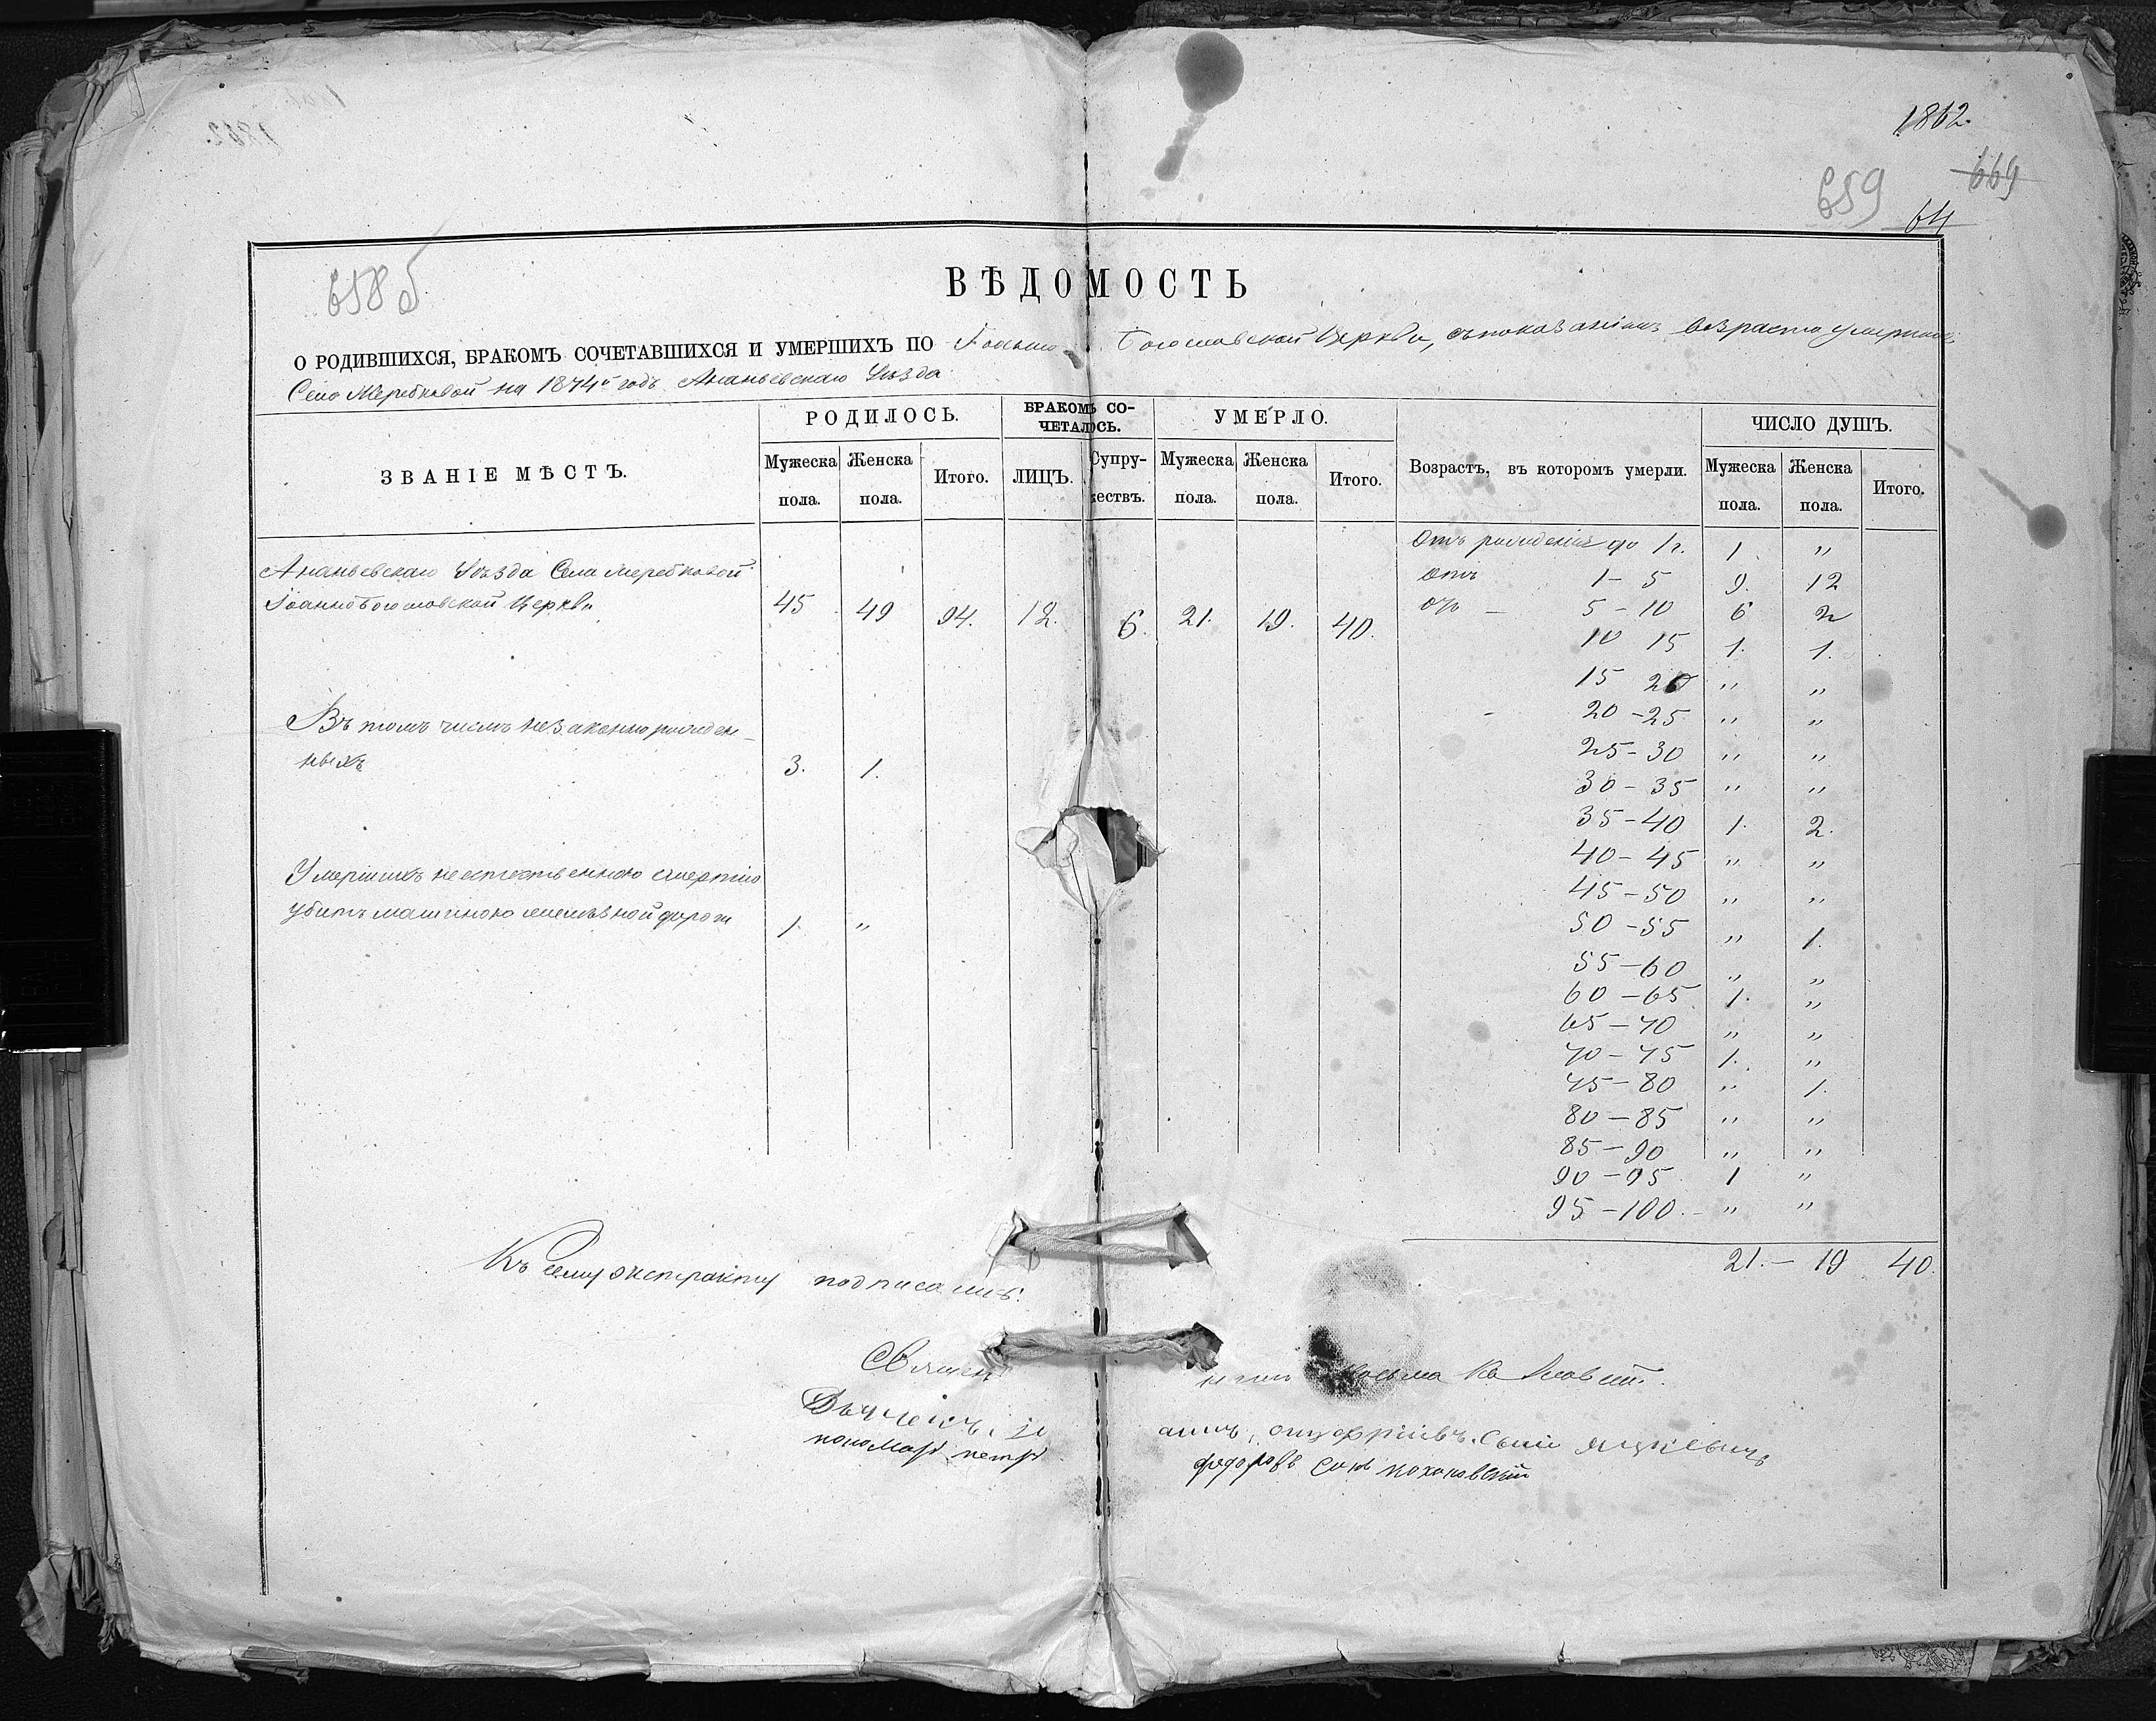 1862.
669
659
64
658 б
ВѢДОМОСТЬ
О РОДИВШИХСЯ, БРАКОМЪ СОЧЕТАВШИХСЯ И УМЕРШИХЪ ПО Іоанно-Богословской Церкви, съ показаніемъ возраста умершихъ
Села Жеребковой на 1874й годъ Ананьевскаго Уѣзда
ЗВАНІЕ МѢСТЪ.
РОДИЛОСЬ.
БРАКОМЪ СО-
ЧЕТАЛОСЬ.
УМЕРЛО.
Возрастъ, въ которомъ умерли.
ЧИСЛО ДУШЪ.
Мужеска пола. Женска пола. Итого. ЛИЦЪ. Супру-жествъ. Мужеска пола. Женска пола. Итого. Мужеска пола. Женска пола. Итого.
Ананьевскаго Уѣзда Села Жеребковой
Іоанно Богословской Церкви 45 49 94. 12. 6. 21. 19. 40.
Въ томъ числѣ незаконнорожден-
ныхъ 3. 1.
Умершихъ неестественною смертію
убитъ машиною желѣзной дороги 1. "
Отъ рожденія до 1 г. 1. "
Отъ 1 - 5 9. 12
От — 5 - 10 6 2
10 15 1. 1.
15 20 " "
20 - 25 " "
25 - 30 " "
30 - 35 " "
35 - 40 1. 2.
40 - 45 " "
45 - 50 " "
50 - 55 " 1.
55 - 60 " "
60 - 65 1. "
65 - 70 " "
70 - 75 1. "
75 - 80 " 1.
80 - 85 " "
85 - 90 " "
90 - 95 1 "
95 - 100. - " "
21. - 19 40.
Къ сему экстракту подписались:
Священникъ Косьма
Дьячекъ сынъ Яцкевичъ
пономарь петръ федоровъ сынъ кохановскій